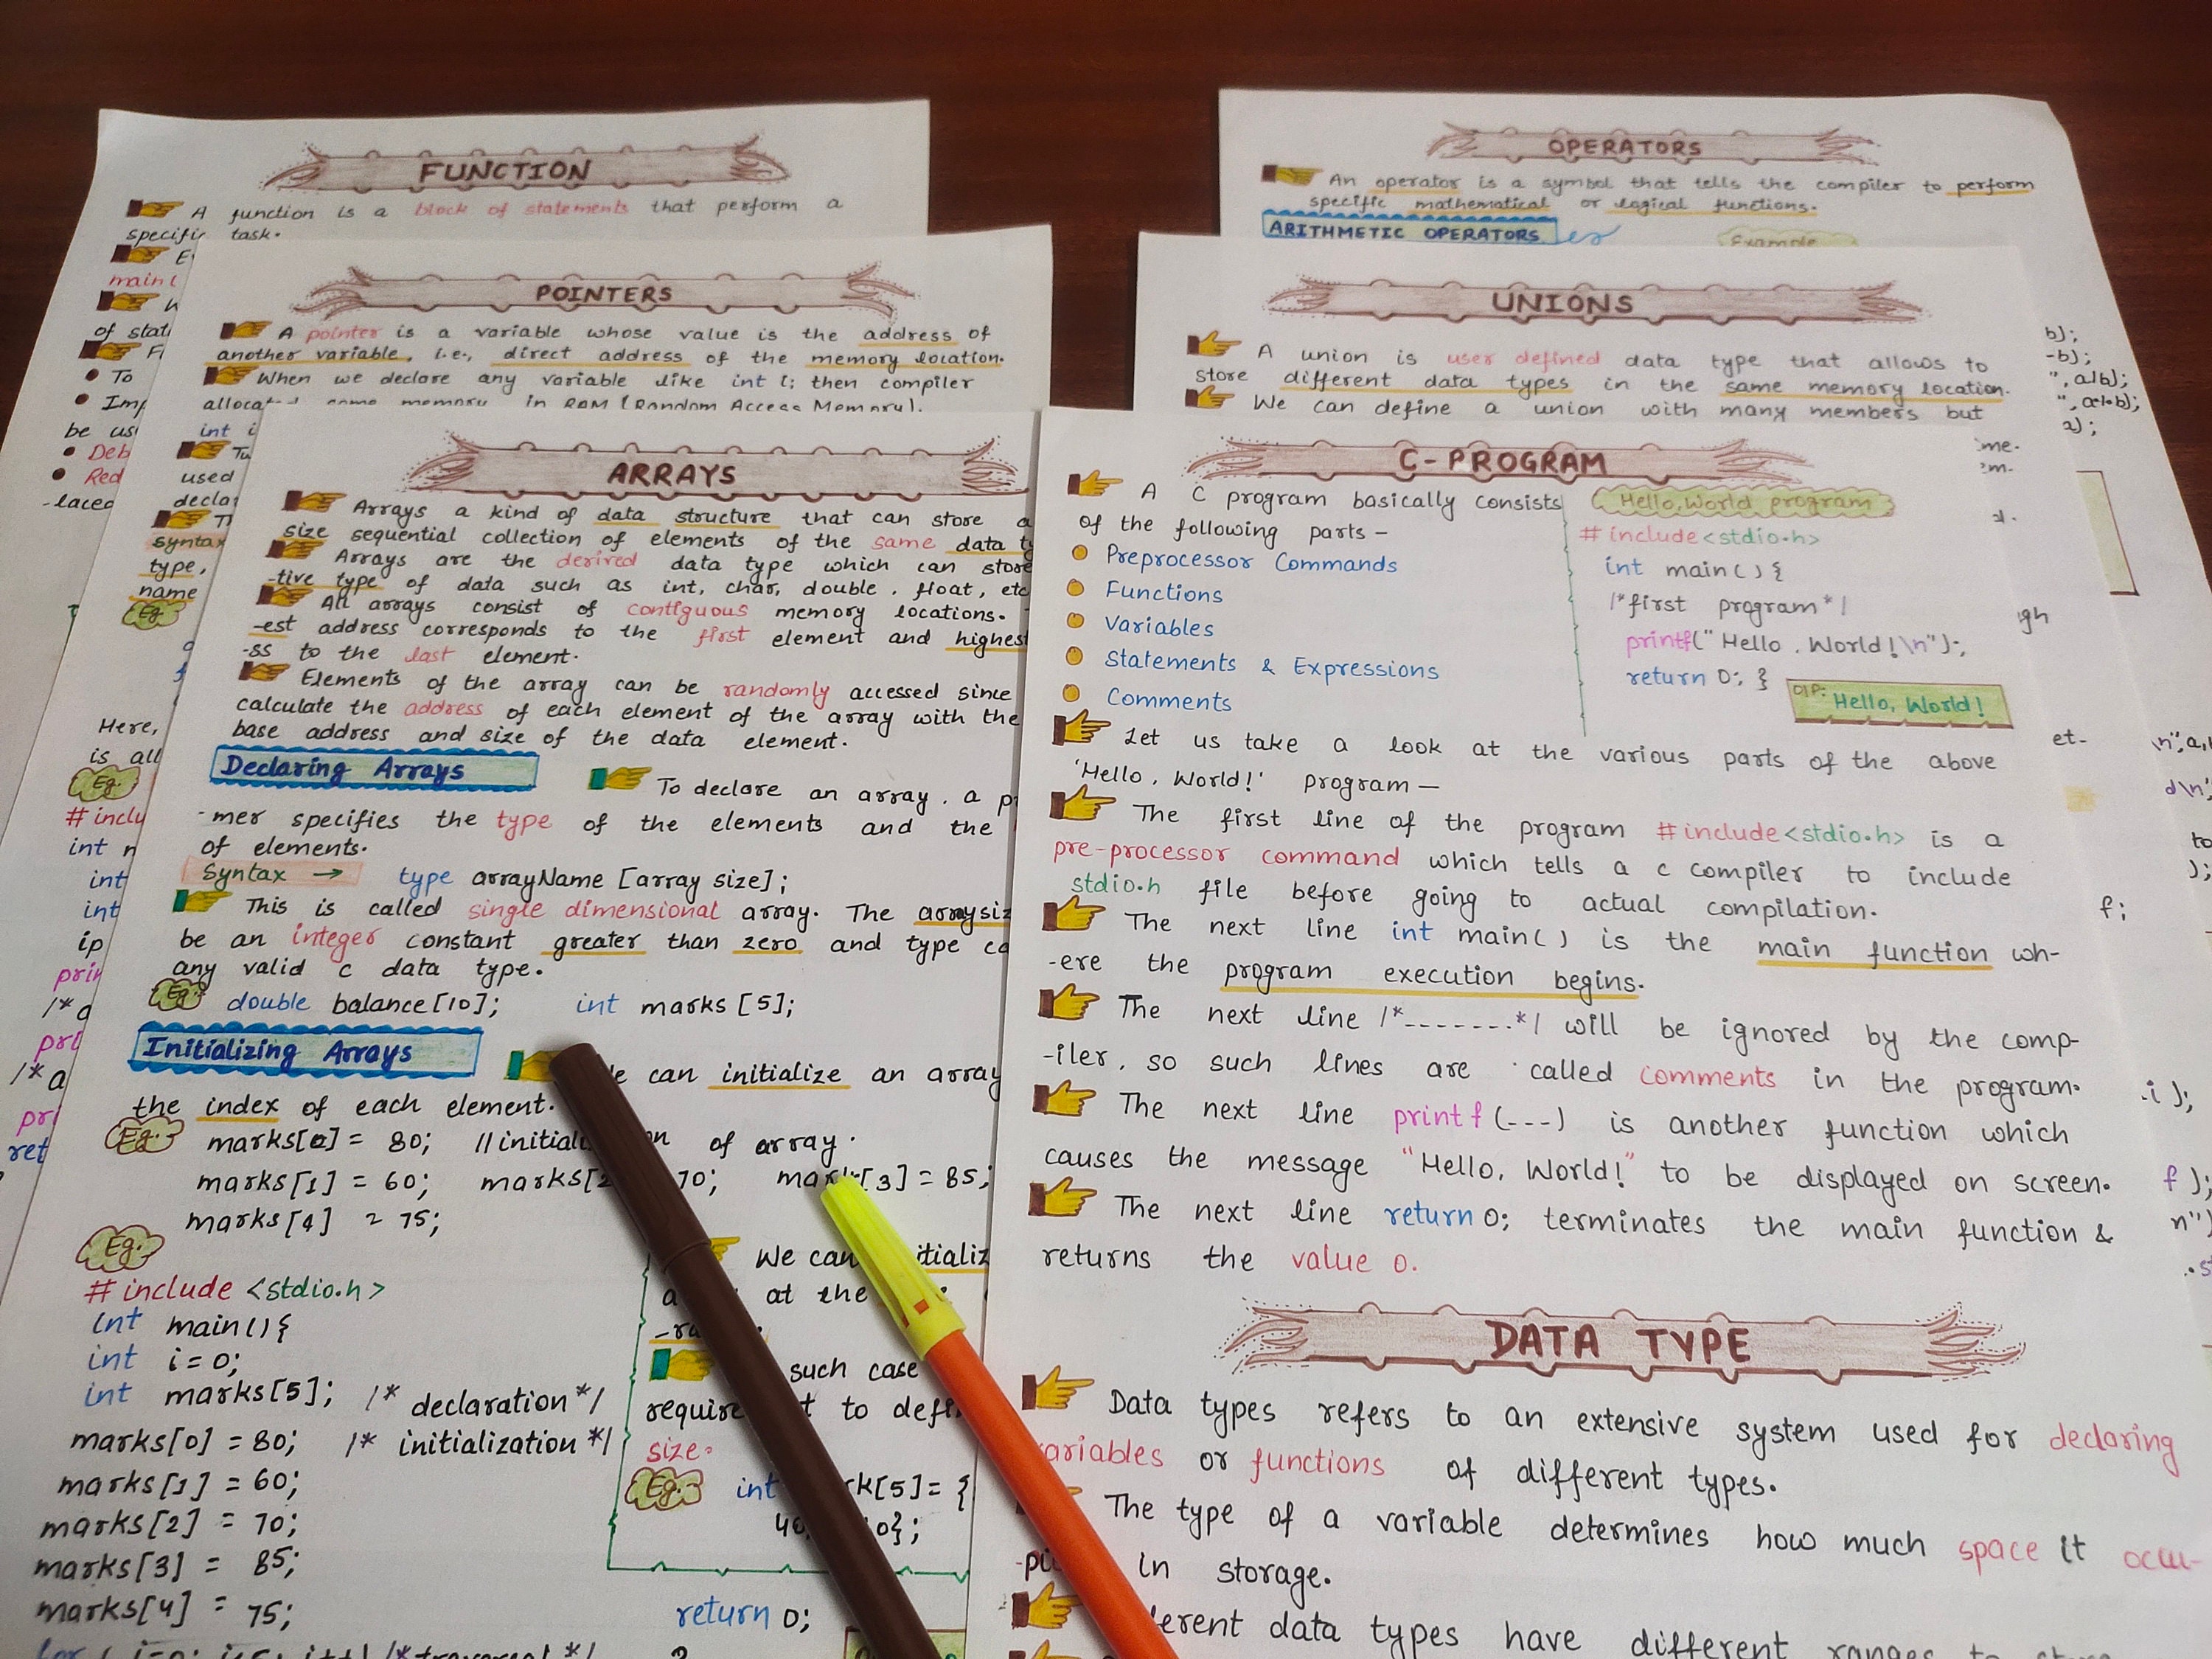 FUNCTION
A function is a block of statements that perform a
specific task.
main(
of stat
To
Imp
be us
Deb
Red
-laced
Here,
is all
Eg.
# inclu
int
int
int
ip
prin
/*a
pri
/*a
pri
ret
POINTERS
A pointer is a variable whose value is the address of
another variable, i.e., direct address of the memory location.
When we declare any variable like int i; then compiler
allocated some memory in RAM (Random Access Memory).
int i
used
decla
syntax
type,
name
Eg
ARRAYS
Arrays a kind of data structure that can store a
size sequential collection of elements of the same data ty
Arrays are the derived data type which can store
-tive type of data such as int, char, double, float, etc
All arrays consist of contiguous memory locations.
-est address corresponds to the first element and highest
-ss to the last element.
Elements of the array can be randomly accessed since
calculate the address of each element of the array with the
base address and size of the data element.
Declaring Arrays
To declare an array, a p
-mer specifies the type of the elements and the
of elements.
Syntax → type arrayName [array size];
This is called single dimensional array. The arraysiz
be an integer constant greater than zero and type ca
any valid c data type.
Eg. double balance[10]; int marks [5];
Initializing Arrays
can initialize an array
the index of each element.
Eg. marks[0] = 80; // of array.
marks[1] = 60; marks[2 70; mark [3] = 85;
marks[4] = 75;
Eg.
# include <stdio.h>
int main(){
int i=0;
int marks[5]; /* declaration */
marks[0] = 80; /* initialization */
marks[1] = 60;
marks[2] = 70;
marks[3] = 85;
marks[4] = 75;
for ( i=0; i<5; i++) /*traversal */
We can
at the
such case
to defi
size.
Eg. int rk[5]= {
40, 0};
return 0;
}
OPERATORS
An operator is a symbol that tells the compiler to perform
specific mathematical or logical functions.
ARITHMETIC OPERATORS
Example
b);
-b);
", a/b);
", a*b);
a);
UNIONS
A union is user defined data type that allows to
store different data types in the same memory location.
We can define a union with many members but
C-PROGRAM
A C program basically consists
of the following parts –
Preprocessor Commands
Functions
Variables
Statements & Expressions
Comments
Hello,World program
# include<stdio.h>
int main() {
/*first program*/
printf("Hello, World!\n");
return 0; }
O/P:
Hello, World!
Let us take a look at the various parts of the above
'Hello, World!' program –
The first line of the program # include<stdio.h> is a
pre-processor command which tells a c compiler to include
stdio.h file before going to actual compilation.
The next line int main() is the main function wh-
-ere the program execution begins.
The next line /*-------*/ will be ignored by the comp-
-iler, so such lines are called comments in the program.
The next line printf(---) is another function which
causes the message "Hello, World!" to be displayed on screen.
The next line return 0; terminates the main function &
returns the value 0.
DATA TYPE
Data types refers to an extensive system used for declaring
variables or functions of different types.
The type of a variable determines how much space it occu-
in storage.
data types have different ranges to store